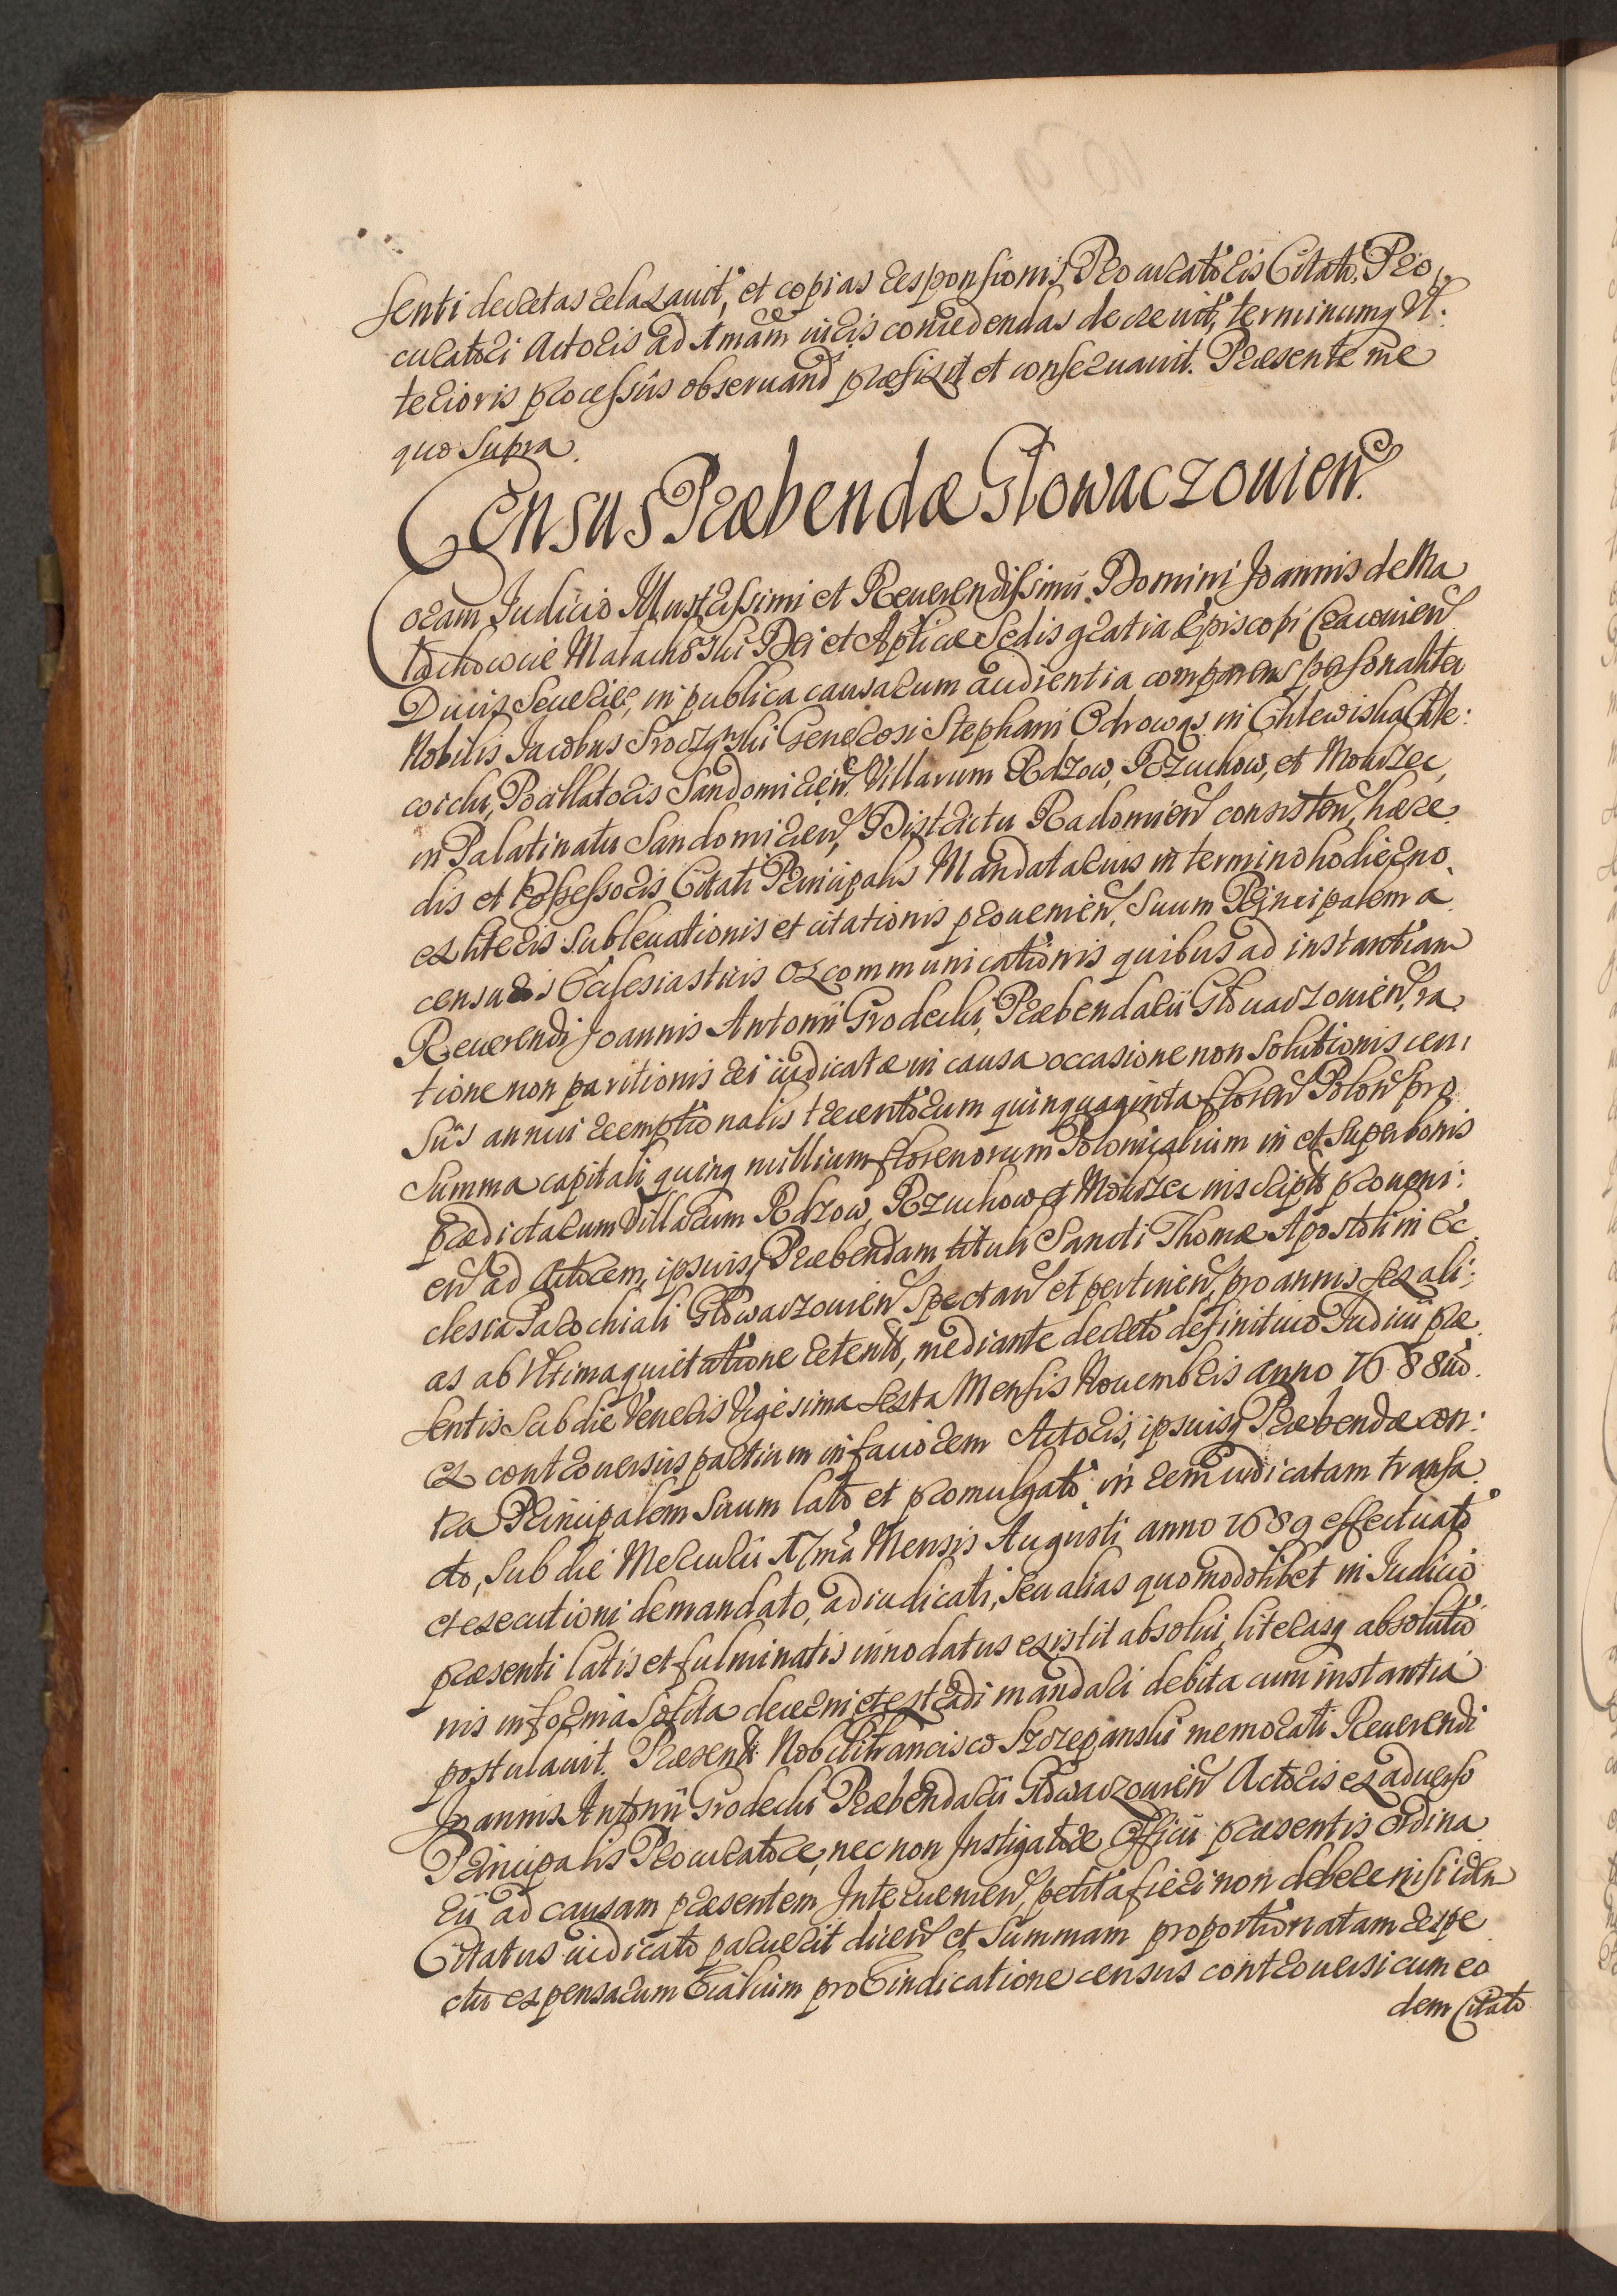 senti decretas relaxavit, et copias responsionis Procuratoris Citati, Pro
curatori Actoris ad 1mam iuris concedendas decrevit, terminumq Vl:
terioris processûs observand præfixit et conservavit. Præsente me
quo supra.
Census Præbendæ Glowaczovien.
Coram Judicio Illustrissimi et Reverendissimi Domini Joannis de Ma
łachowice Małachowski Dei et Aplicæ Sedis gratia Episcopi Cracovien
Ducis Severiæ, in publica causarum audientia comparens personaliter
Nobilis Jacobus Generosi Stephani Odrowąs in Chlewiska Chle:
Pocillatoris Sandomirien, Villarum Rdzow, Rzuchow, et Mokrzec,
in Palatinatu Sandomirien, Districtu Radomien consisten, hære
dis et Possessoris Citati Principalis Mandatarius in termino hodierno
ex literis sublevationis et citationis provenien, Suum Principalem a
censuris Ecclesiasticis excommunicationis quibus ad instantiam
Reverendi Joannis Antonii Grodecki, Præbendarii Głowaczovien, ra
tione non paritionis rei iudicatæ in causa occasione non solutionis cen:
sûs annui reemptionalis trecentorum quinquaginta floren Polon pro
Summa capitali quinq millium florenorum Polonicalium in et super bonis
prædictarum Villarum Rdzow, Rzuchow et Mokrzec inscripto proveni:
en ad Actorem, ipsiusq Præbendam tituli Sancti Thomæ Apostoli in Ec
clesia Parochiali Głowaczovien spectan et pertinen, pro annis ali:
as ab Vltima quietatione retento, mediante decreto definitivo Judicii præ
sentis sub die Veneris Vigesima sexta Mensis Novembris anno 1688vo
ex controversiis partium in favorem Actoris, ipsiusq Præbendæ con:
tra Principalem suum lato et promulgato, in rem iudicatam transa
cto, sub die Mercurii 17ma Mensis Augusti anno 1689 effectuato
et executioni demandato, adiudicati, seu alias quomodolibet in Judicio
præsenti latis et fulminatis innodatus existit absolvi, literasq absolutio
nis in forma solita decerni et extradi mandari debita cum instantia
postulavit. Præsente Nobili Francisco Szczepanski memorati Reverendi
Joannis Antonii Grodecki Præbendarii Głowaczovien Actoris ex adverso
Principalis Procuratore, nec non Instigatore Officii præsentis ordina
rii ad causam præsentem Intervenien, petita fieri non debere nisi idem
Citatus iudicato paruerit dicen et Summam proportionatam respe
ctu expensarum litialium pro Evindicatione census controversi cum eo
dem Citato